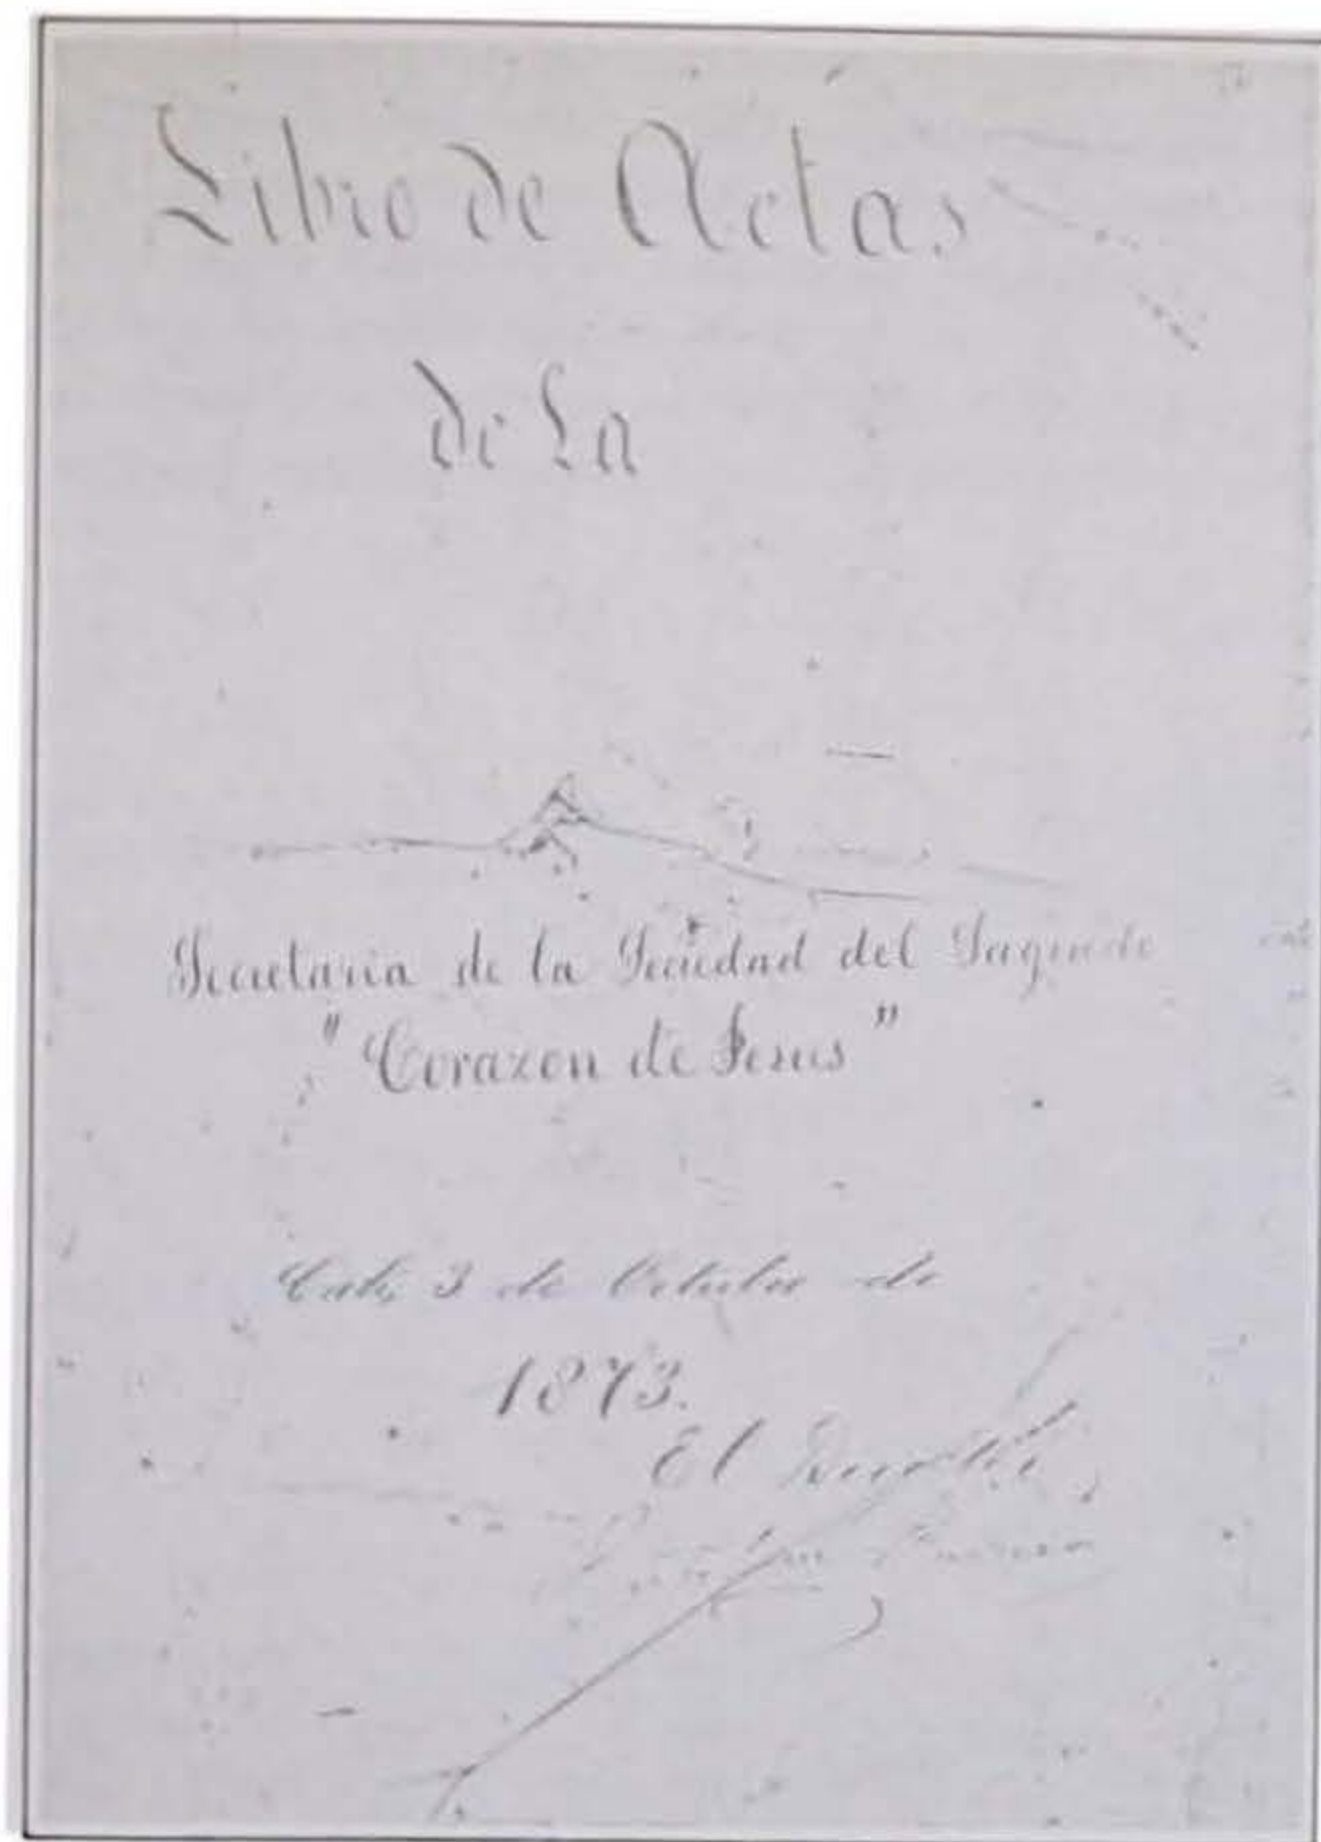 Libro de Actas
de La
Secretaria de la Sociedad del Sagrado
"Corazon de Jesus"
Cali, 3 de Octubre de
1873.
El